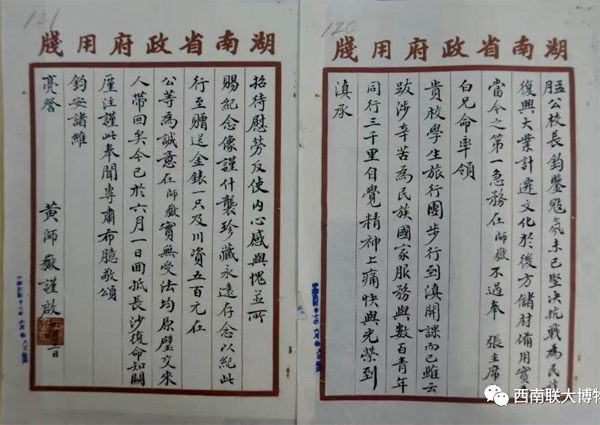 120
湖南省政府用牋
孟公校長鈞鑒寇氛未已堅決抗戰為民族
復興大業計遷文化於後方儲材備用實
當今之第一急務在師嶽不過奉 張主席
白兄命率領
貴校學生旅行團步行到滇開課而已雖云
跋涉辛苦為民族國家服務與數百青年
同行三千里自覺精神上痛快與光榮到
滇承
121
湖南省政府用牋
招待慰勞反使內心感與愧並所
賜紀念像謹什襲珍藏永遠存念以紀此
行至贈送金錶一只及川資五百元在
公等為誠意在師嶽實無受法均原璧交來
人帶回矣今已於六月一日回抵長沙復命知關
厪注謹此奉聞專肅布臆敬頌
鈞安諸維
亮詧
黃師嶽謹啟 日
西南联大博物